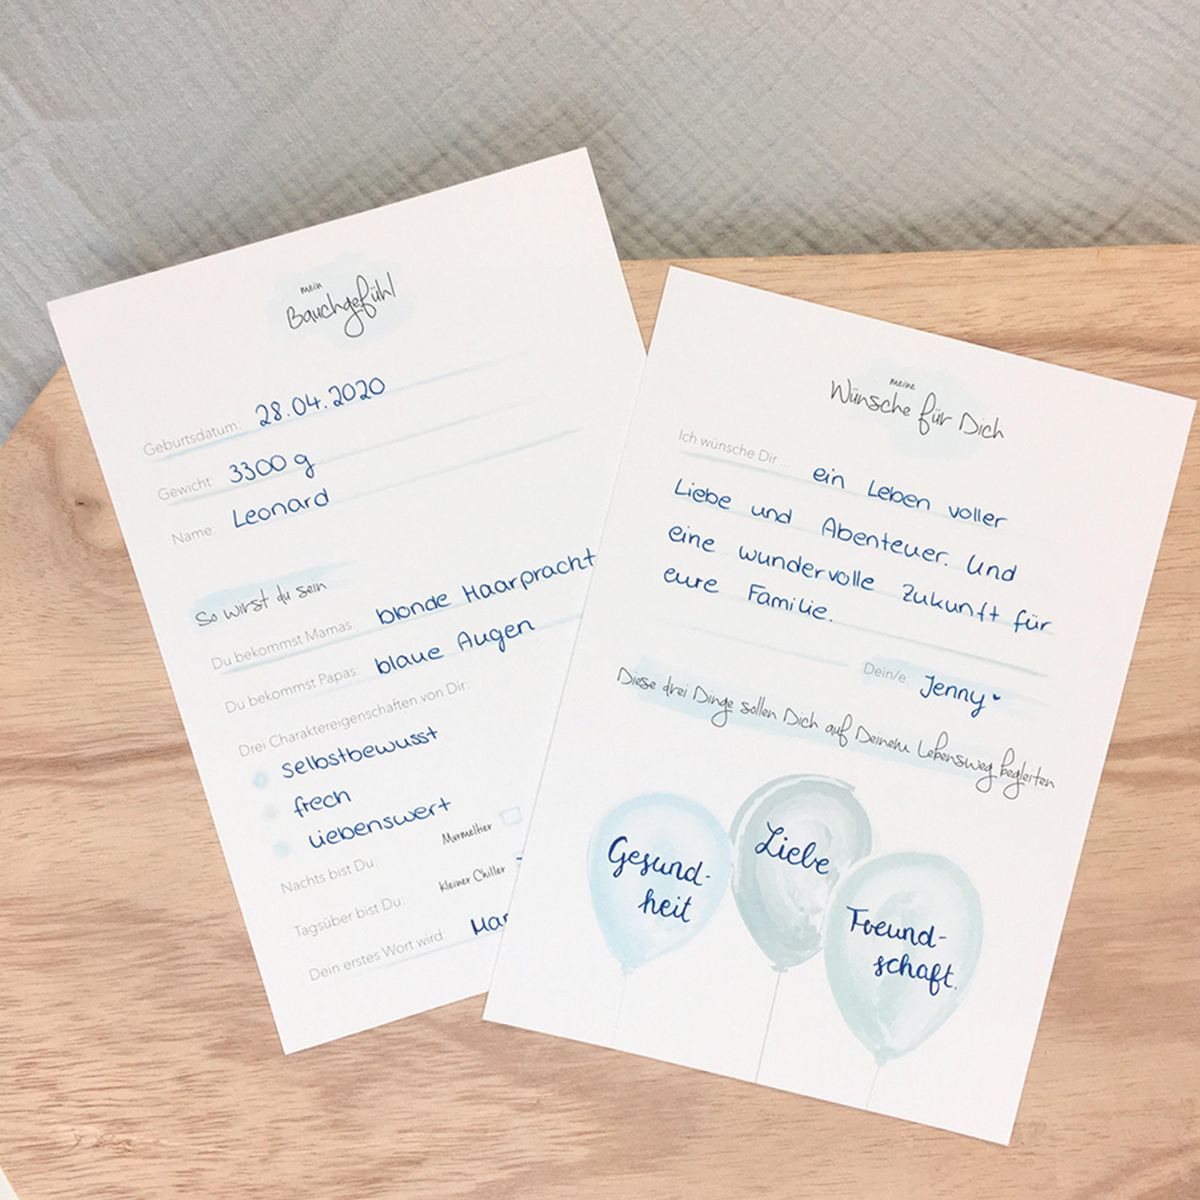 mein
Bauchgefühl
Geburtsdatum: 28.04.2020
Gewicht: 3300 g
Name: Leonard
So wirst du sein
Du bekommst Mamas: blonde Haarpracht
Du bekommst Papas: blaue Augen
Drei Charaktereigenschaften von Dir:
selbstbewusst
frech
liebenswert
Nachts bist Du: Murmeltier
Tagsüber bist Du: kleiner Chiller
Dein erstes Wort wird:
meine
Wünsche für Dich
Ich wünsche Dir ... ein Leben voller
Liebe und Abenteuer. Und
eine wundervolle Zukunft für
eure Familie.
Dein/e: Jenny
Diese drei Dinge sollen Dich auf Deinem Lebensweg begleiten
Gesund-
heit
Liebe
Freund-
schaft.